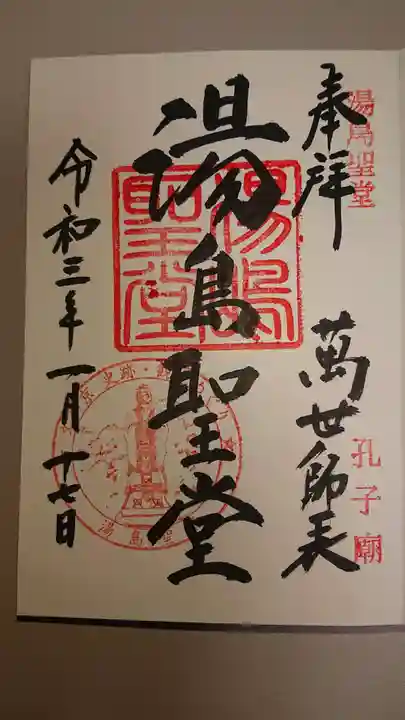 湯島聖堂
孔子廟
奉拝
萬世師表
湯島聖堂
湯島聖堂
史跡・
湯島聖堂
令和三年一月十七日